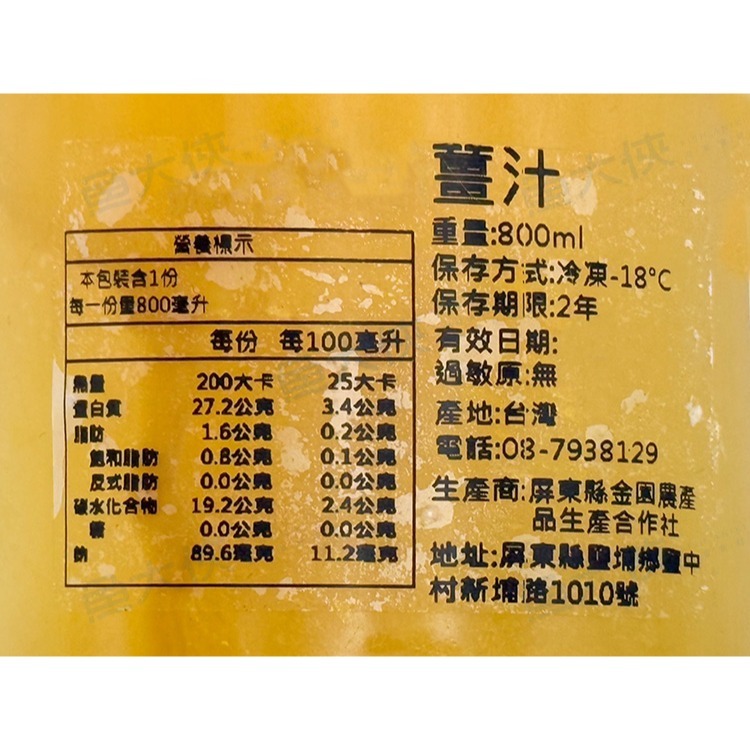 薑汁
重量:800ml
保存方式:冷凍-18°C
保存期限:2年
有效日期:
過敏原:無
產地:台灣
電話:08-7938129
生產商:屏東縣金園農產
品生產合作社
地址:屏東縣鹽埔鄉鹽中
村新埔路1010號
營養標示
本包裝含1份
每一份量800毫升
每份 每100毫升
熱量 200大卡 25大卡
蛋白質 27.2公克 3.4公克
脂肪 1.6公克 0.2公克
飽和脂肪 0.8公克 0.1公克
反式脂肪 0.0公克 0.0公克
碳水化合物 19.2公克 2.4公克
糖 0.0公克 0.0公克
鈉 89.6毫克 11.2毫克